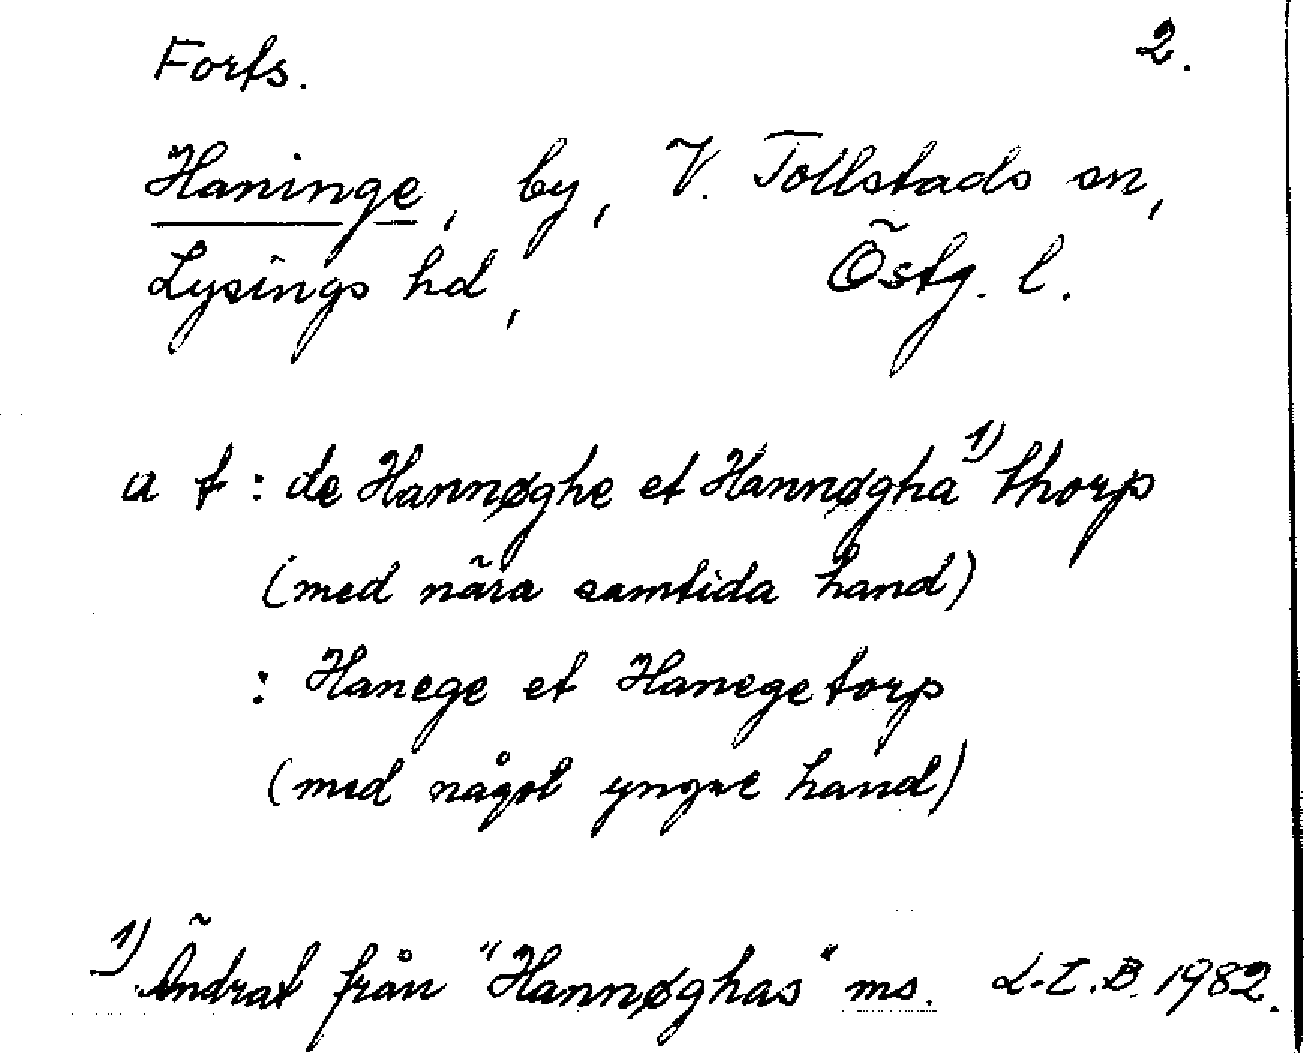 Forts. 2.
Haninge, by, V. Tollstads sn,
Lysings hd, Östg. l.
a t : de Hannøghe et Hannøgha 1) thorp
(med nära samtida hand)
: Hanege et Hanegetorp
(med något yngre hand)
1) Ändrat från "Hannøghas" ms. L.E.B. 1982.